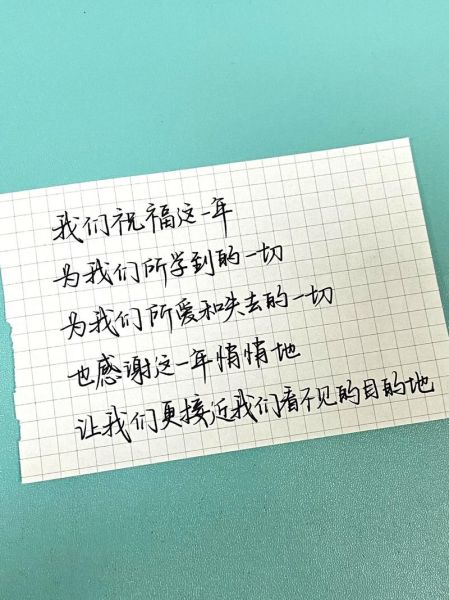 我们祝福这一年
为我们所学到的一切
为我们所爱和失去的一切
也感谢这一年悄悄地
让我们更接近我们看不见的目的地